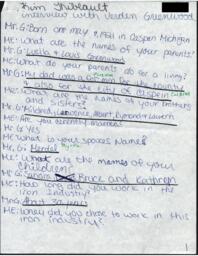 Kim Thibeault
interview with Verden Greenwood
Mr. G: Born on May 8, 1921 in Aspen Michigan
Me: What are the names of your parents?
Mr. G: Luella + Louis Greenwood
Me: What do your parents do for a living?
Mr. G: My dad was a
+ also for the city of
Me: What are the names of your brothers
and sisters?
Mr. G: Mildred, Lawrence, Albert, Byron and Lavern
Me: Are you currently married?
Mr. G: Yes
Me: What is your spouses Name?
Mr. G: Mendel
Me: What are the names of your
Children?
Mr. G: Bruce and Kathren
Me: How long did you work in the
iron Industry?
Mr. G: About 30 years
Me: Why did you chose to work in this
iron industry?
1